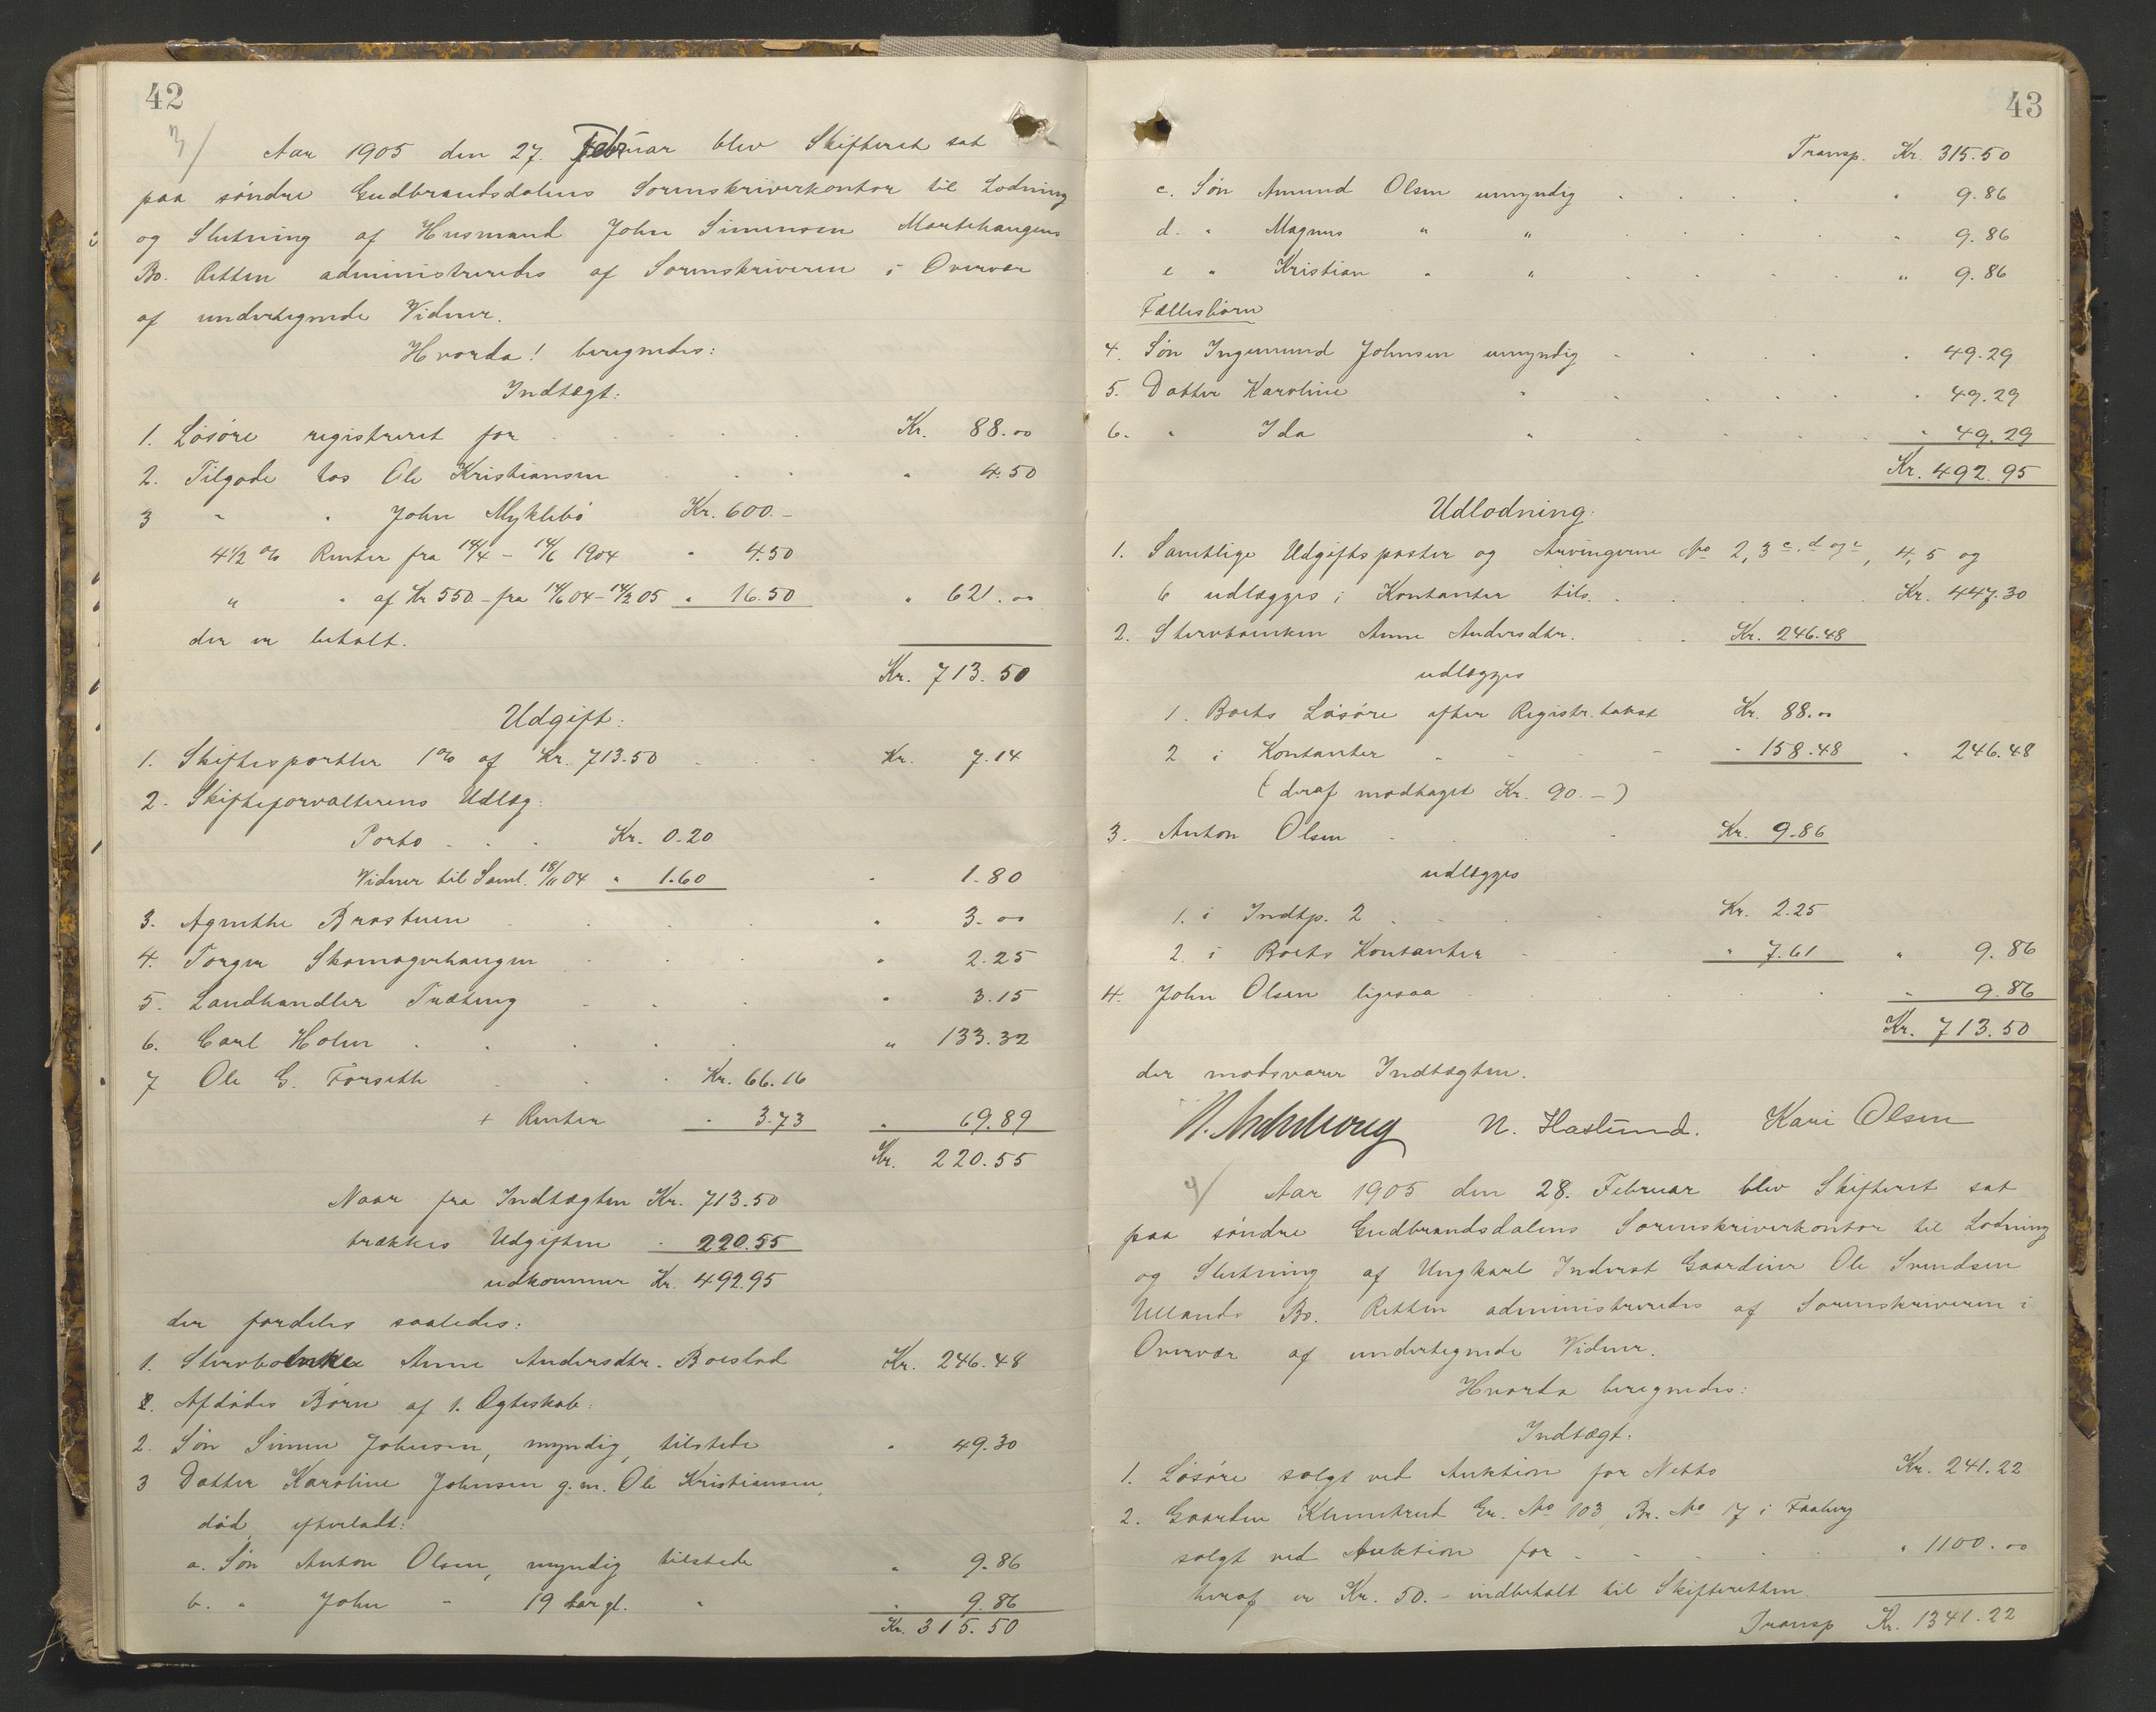 42
3/ Aar 1905 den 27. Februar blev Skifteret sat
paa söndre Gudbrandsdalens Sorenskriverkontor til Lodning
og Slutning af Husmand John Simensen Martehaugens
Bo. Retten administreredes af Sorenskriveren i Overvær
af undertegnede Vidner.
Hvorda! beregnedes:
Indtægt:
1. Lösöre registreret for Kr. 88.00
2. Tilgode hos Ole Kristiansen " 4.50
3 " " John Myklebö Kr. 600.-
4 1/2 % Renter fra 14/4 - 14/6 1904 " 4.50
" " af Kr 550.- fra 14/6 04 - 14/2 05 " 16.50 " 621.00
der er betalt.
Kr. 713.50
Udgift:
1. Skiftesportler 1% af Kr. 713.50 Kr. 7.14
2. Skifteforvalterens Udlæg:
Porto Kr. 0.20
Vidner til Saml. 18/11 04 " 1.60 " 1.80
3. Agnethe Brastuen " 3.00
4. Torger Skomagerhaugen " 2.25
5. Landhandler Trætung " 3.15
6. Carl Holm " 133.32
7 Ole G. Forseth Kr. 66.16
+ Renter " 3.73 " 69.89
Kr. 220.55
Naar fra Indtægten Kr. 713.50
trækkes Udgiften " 220.55
udkommer Kr. 492.95
der fordeles saaledes:
1. Stervboenke Anne Andersdtr. Boeslod Kr. 246.48
2. Afdödes Börn af 1. Ægteskab:
2. Sön Simen Johnsen, myndig, tilstede " 49.30
3 Datter Karoline Johnsen g.m. Ole Kristiansen,
död, efterladt:
a. Sön Anton Olsen, myndig tilstede " 9.86
b. " John " 19 aar gl. " " 9.86
Kr. 315.50
43
Transp. Kr. 315.50
c. Sön Amund Olsen umyndig " 9.86
d. " Magnus " " " 9.86
e " Kristian " " " 9.86
Fællesbörn
4. Sön Ingemund Johnsen umyndig " 49.29
5. Datter Karoline " " 49.29
6. " Ida " " 49.29
Kr. 492.95
Udlodning:
1. Samtlige Udgiftsposter og Arvingerne No 2, 3 c. d og e, 4, 5 og
6 udlægges i Kontanter tils. Kr. 447.30
2. Stervboenken Anne Andersdtr. Kr. 246.48
udlægges
1. Boets Lösöre efter Registr. takst Kr. 88.00
2 i Kontanter " 158.48 " 246.48
(deraf modtaget Kr. 90.-)
3. Anton Olsen Kr. 9.86
udlægges
1. i Indtp. 2 Kr. 2.25
2. i Boets Kontanter " 7.61 " 9.86
4. John Olsen ligesaa " 9.86
Kr. 713.50
der modsvarer Indtægten.
N. Haslund. Kari Olsen
4/ Aar 1905 den 28. Februar blev Skifteret sat
paa söndre Gudbrandsdalens Sorenskriverkontor til Lodning
og Slutning af Ungkarl Inderst Gaardeier Ole Svendsen
Ullands Bo. Retten administreredes af Sorenskriveren i
Overvær af undertegnede Vidner.
Hvorda beregnedes:
Indtægt:
1. Lösöre solgt ved Auktion for Netto Kr. 241.22
2. Gaarden Klemetrud Gr. No 103, Br. No 17 i Faaberg
solgt ved Auktion for " 1100.00
heraf er Kr. 50.- indbetalt til Skifteretten
Transp Kr. 1341.22